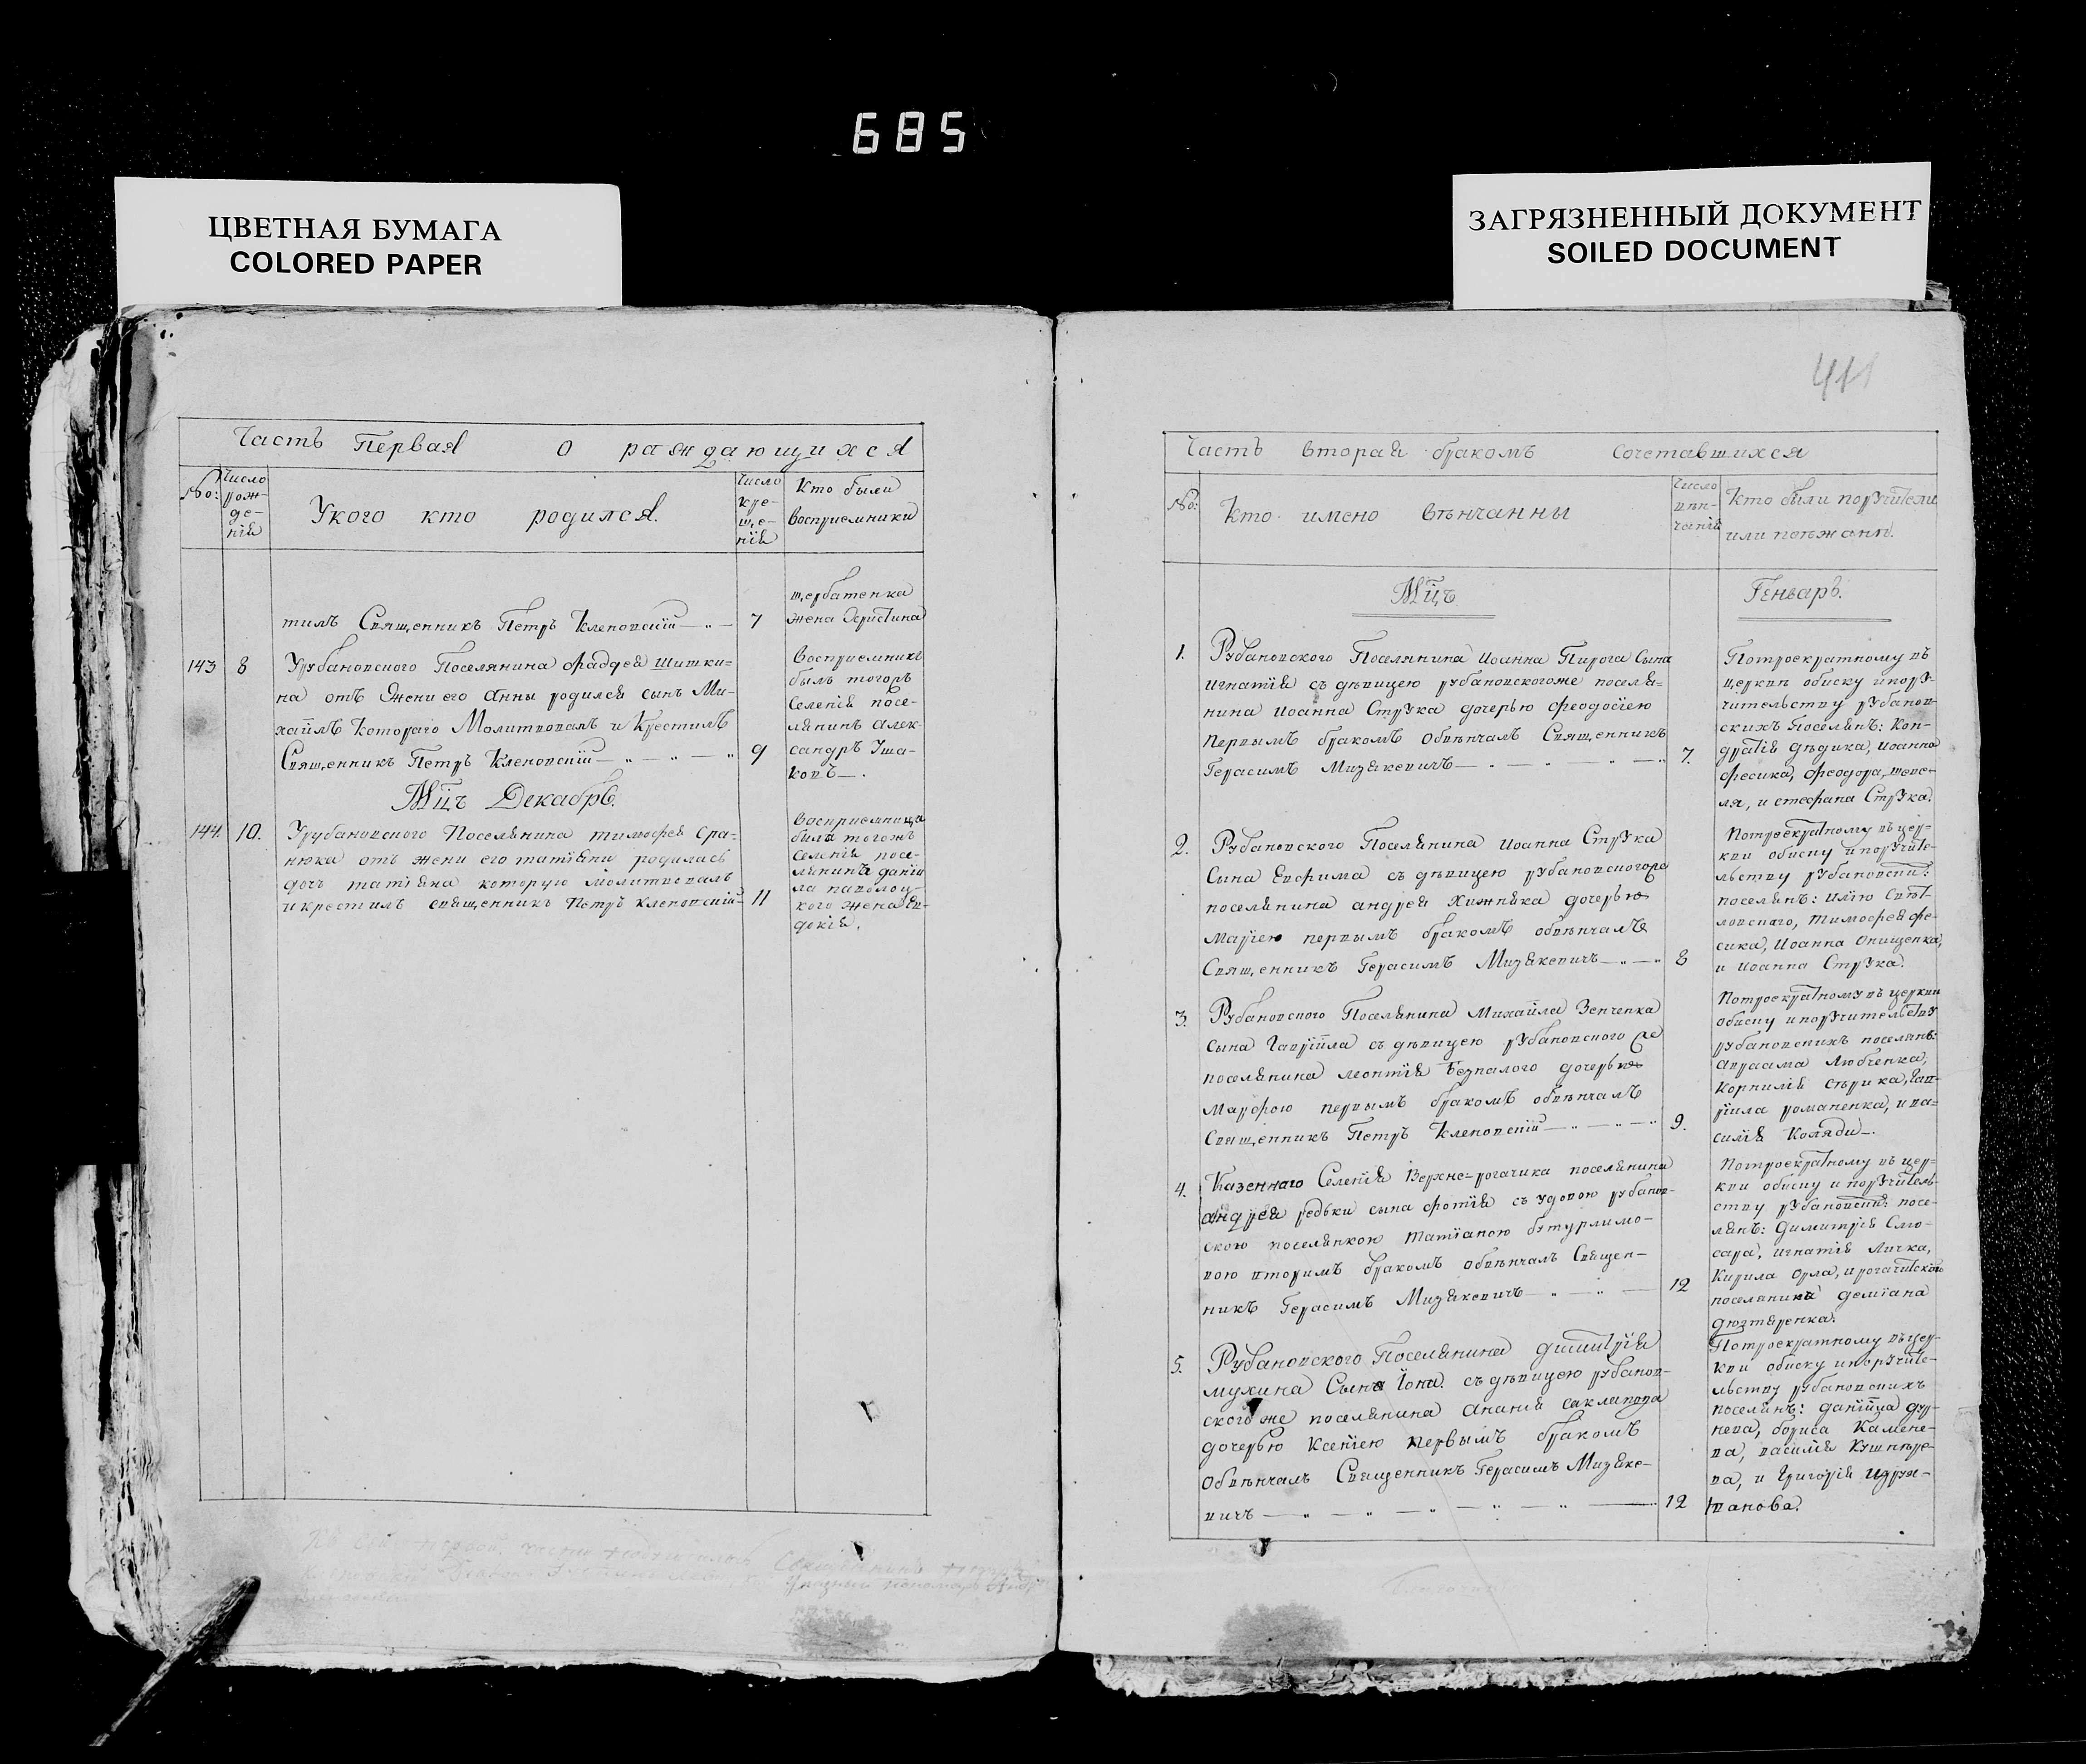 685
ЦВЕТНАЯ БУМАГА
COLORED PAPER
ЗАГРЯЗНЕННЫЙ ДОКУМЕНТ
SOILED DOCUMENT
Часть Первая о раждающихся
№: Число рож-
де-
нїя
Укого кто родился.
Число
кре-
ще-
нїя
Кто были
восприемники
щербатенка
тилъ Священникъ Петръ Кленовскїй 7 жена Христина
143 8 Урубановского Поселянина Фаддея Шишки-
на отъ Жени его Анны родился сынъ Ми-
хаилъ Которого Молитвовалъ и Крестилъ
Священникъ Петръ Кленовскїй 9
Восприемникъ
былъ тогожъ
Селенїя посе-
лянинъ Алек-
сандръ Уша-
ковъ.
Мц̃ъ Декабрь.
144 10. Урубановского Поселянина тимофея Сра-
нюка отъ жени его татїяни родилась
дочь татїяна которую молитвовалъ
и крестилъ священникъ Петръ кленовскїй 11
Восприемница
била тогожъ
селенїя посе-
лянина данїи
ла наволоц-
кого жена Ев-
докїя.
411
Часть вторая бракомъ Сочетавшихся
№: Кто имено вѣнчанны
Число
вѣн-
чанїя
Кто били поручители
или поѣжанѣ.
Мц̃ъ Генварь.
1. Рубановского Поселянина Иоанна Пирога Сына
Игнатїя съ дѣвицею рубановскогоже поселя-
нина Иоанна Струка дочерью Феодосїею
Первымъ бракомъ обвѣнчалъ Священникъ
Герасимъ Мизякевичъ 7.
Потроекратному въ
церкви обиску и пору-
чительству рубанов-
скихъ Поселянъ: Кон-
дратїя дѣдика, Иоанна
фесика, феодора шепе-
ля, и стефана Струка.
2. Рубановского Поселянина Иоанна Струка
Сына Евфима съ дѣвицею рубановскогоже
поселянина андрея Хижняка дочерью
Марїею первымъ бракомъ обвѣнчалъ
Священникъ Герасимъ Мизякевичъ 8
Потроекратному въ цер-
кви обиску и поручите-
льству рубановских:
поселянъ: Илїю Свѣт-
ловского, Тимофея фе-
сика, Иоанна Онищенка,
и Иоанна Струка.
3. Рубановского Поселянина Михаила Зенченка
Сына Гаврїила съ дѣвицею рубановского же
поселянина леонтїя Безпалого дочерью
Марфою первымъ бракомъ обвѣнчалъ
Священникъ Петръ Кленовскїй 9.
Потроекратному въ церкви
обиску и поручительству
рубановскихъ поселянъ:
Авраама Любченка,
Корнилїя сѣрика, Гав-
рїила романенка, и ва-
силїя Коляди.
4. Казенного Селенїя Верхне-рогачика поселянина
андрея редьки сына фотїя съ удовою рубанов-
скою поселянкою татїаною бутурлимо-
вою вторимъ бракомъ обвѣнчалъ Священ-
никъ Герасимъ Мизякевичъ 12
Потроекратному въ цер-
кви обиску и поручитель-
ству рубановских: посе-
лянъ: Димитрїя Слю-
сара, игнатїя Личка,
Кирила Орла, и рогачикского
поселянина демїана
дюгтяренка.
5. Рубановского Поселянина димитрїя
мухина Сына Iона съ дѣвицею рубанов-
ского же поселянина Ананїя саклакова
дочерью Ксенїею первымъ бракомъ
обвѣнчалъ Священникъ Герасимъ Мизяке-
вичъ 12
Потроекратному въ цер-
кви обиску и поручите-
льству рубановскихъ
поселянъ: данїила дур-
нева, бориса Камене-
ва, василїя Кушнѣре-
ва, и Григорїя